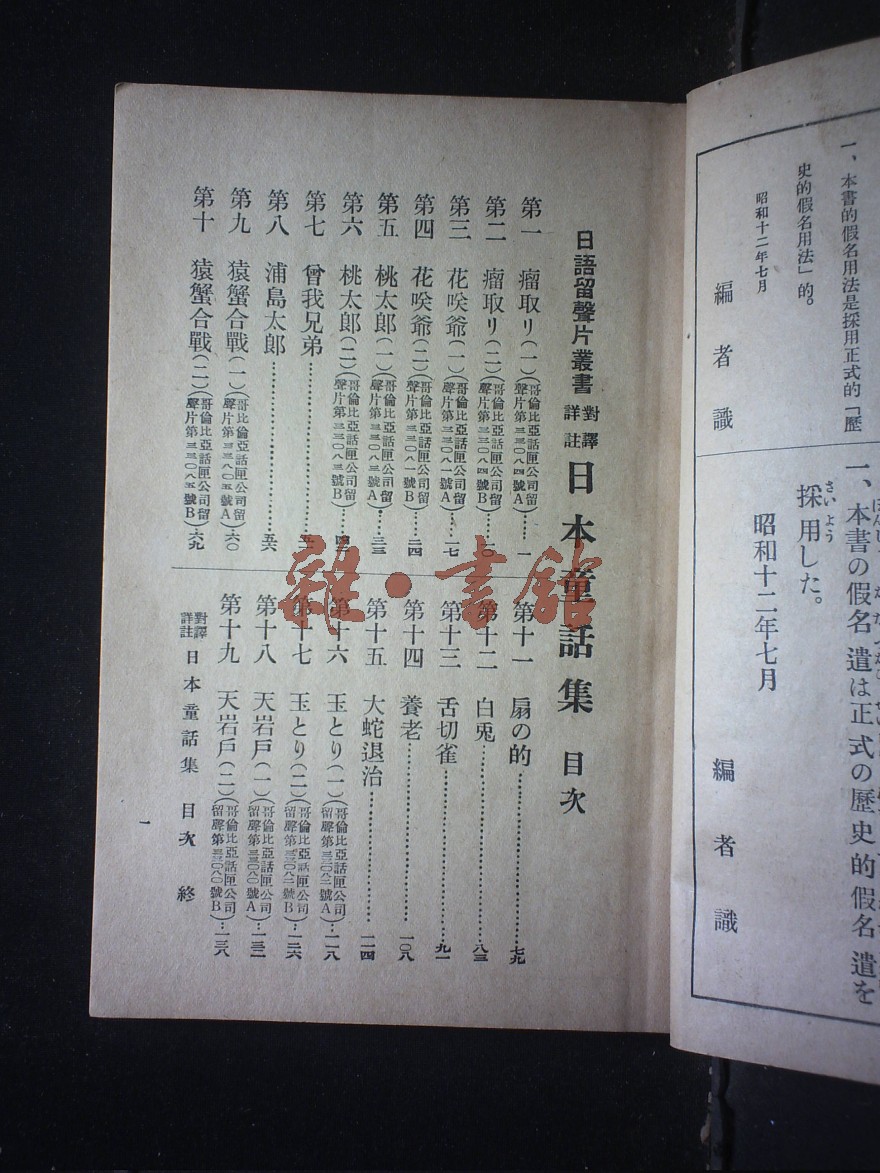 一、本書的假名用法是採用正式的「歷
史的假名用法」的。
昭和十二年七月
編者識
一、本書の假名遣は正式の歷史的假名遣を
採用した。
さいよう
昭和十二年七月
編者識
日語留聲片叢書 對譯詳註 日本童話集 目次
第一 瘤取り(一)(哥倫比亞話匣公司留聲片第三三〇八四號A)…一
第二 瘤取り(二)(哥倫比亞話匣公司留聲片第三三〇八四號B)…一〇
第三 花咲爺(一)(哥倫比亞話匣公司留聲片第三三〇八一號A)…一七
第四 花咲爺(二)(哥倫比亞話匣公司留聲片第三三〇八一號B)…二四
第五 桃太郎(一)(哥倫比亞話匣公司留聲片第三三〇八三號A)…三三
第六 桃太郎(二)(哥倫比亞話匣公司留聲片第三三〇八三號B)…
第七 曾我兄弟
第八 浦島太郎…五六
第九 猿蟹合戰(一)(哥倫比亞話匣公司留聲片第三三〇八五號A)…六〇
第十 猿蟹合戰(二)(哥倫比亞話匣公司留聲片第三三〇八五號B)…六九
第十一 扇の的…七九
第十二 白兎…八三
第十三 舌切雀…九一
第十四 養老…一〇八
第十五 大蛇退治…一一四
第十六 玉とり(一)(哥倫比亞話匣公司留聲第三三〇八二號A)…一一八
第十七 玉とり(二)(哥倫比亞話匣公司留聲第三三〇八二號B)…一二六
第十八 天岩戸(一)(哥倫比亞話匣公司留聲第三三〇八〇號A)…一三二
第十九 天岩戸(二)(哥倫比亞話匣公司留聲第三三〇八〇號B)…一三八
對譯詳註 日本童話集 目次 終
一
雜·書館